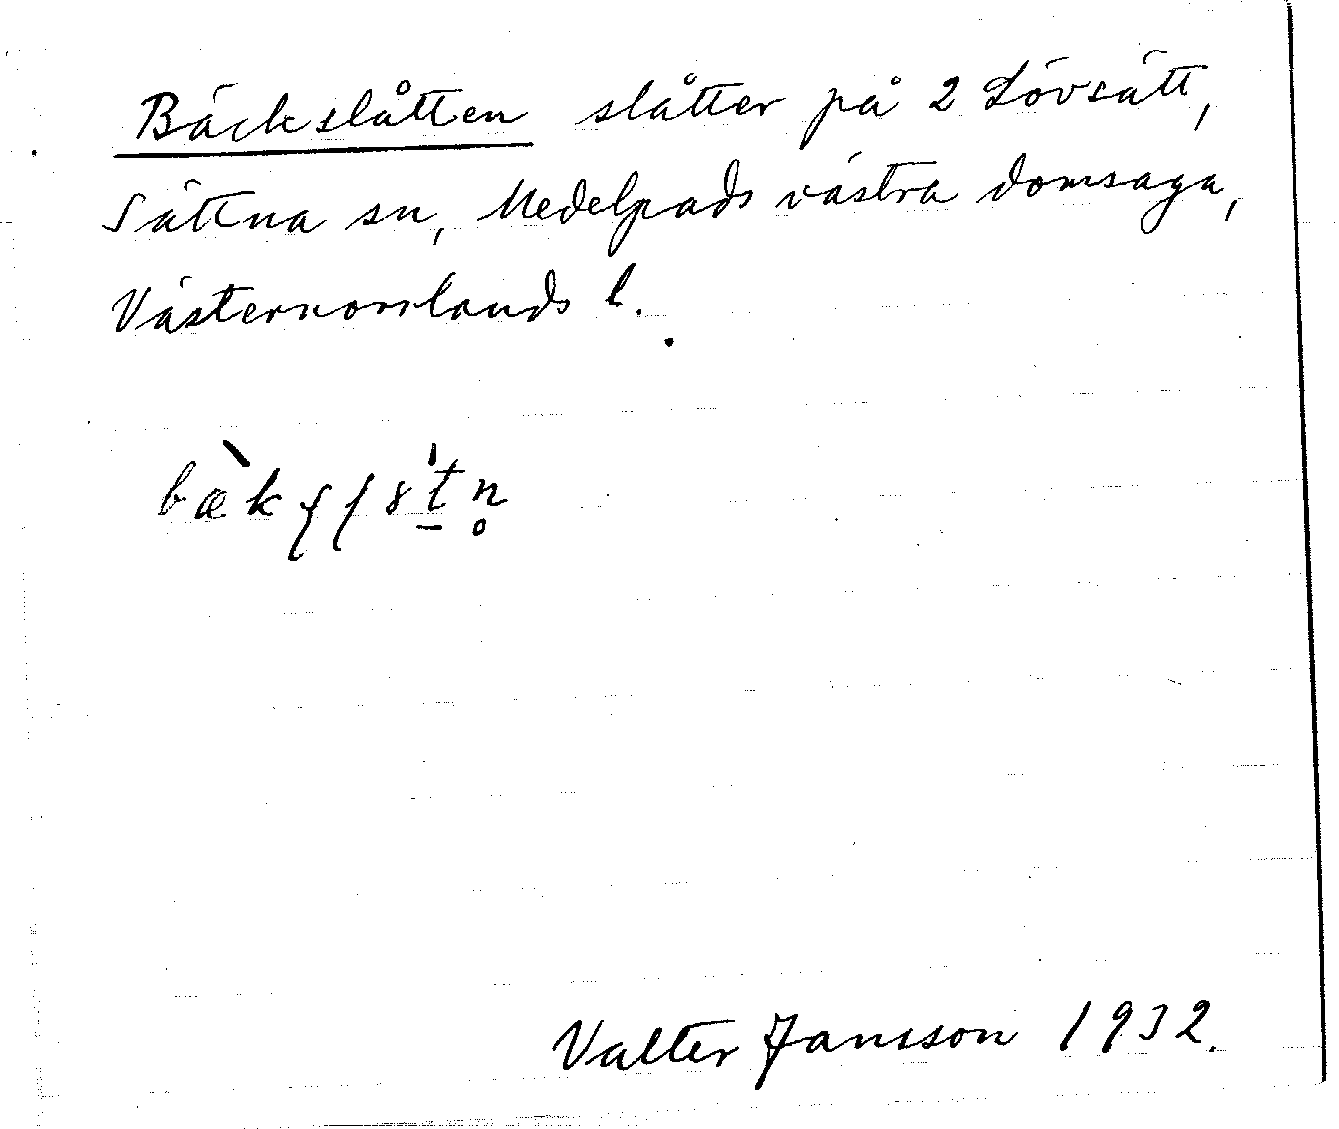 Bäckslåtten slåtter på 2 Lövsätt,
Sättna sn, Medelpads västra domsaga,
Västernorrlands l.
Valter Jansson 1932.